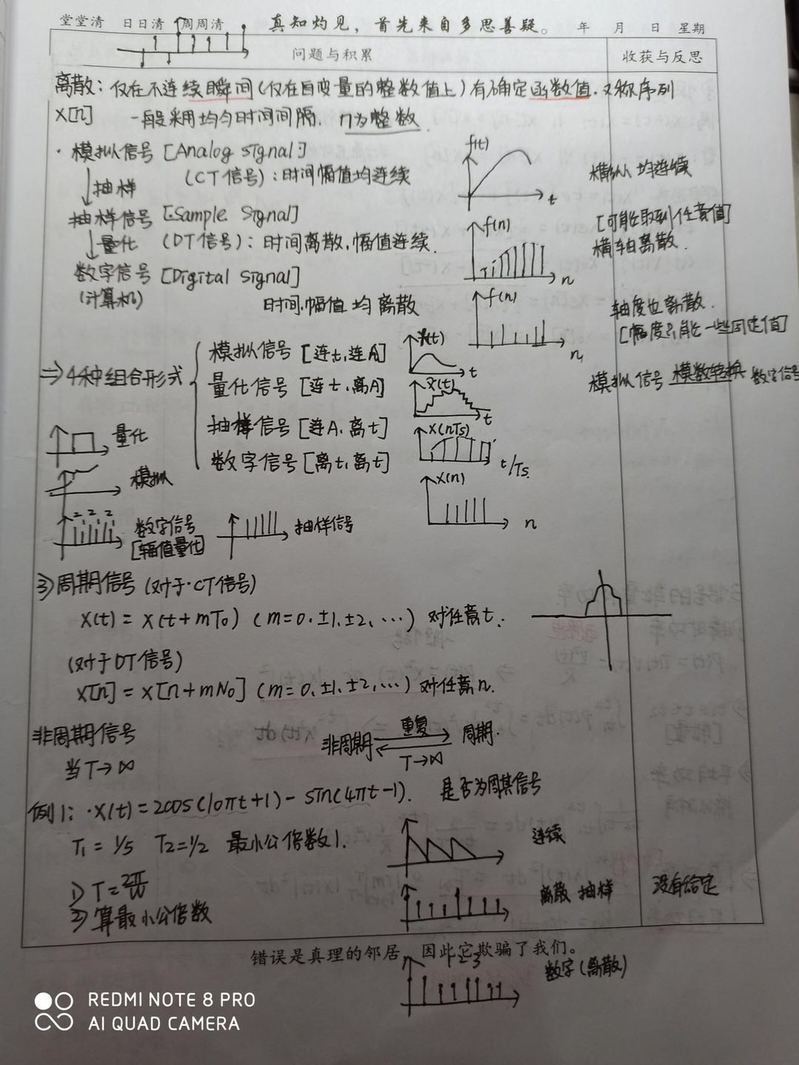 堂堂清 日日清 周周清 真知灼见，首先来自多思善疑。 年 月 日 星期
问题与积累 收获与反思
离散：仅在不连续瞬间(仅在自变量的整数值上)有确定函数值.又称序列
x[n] 一般采用均匀时间间隔. n为整数.
·模拟信号 [Analog signal]
(CT信号)：时间幅值均连续
↓抽样
抽样信号 [Sample Signal]
↓量化 (DT信号)：时间离散,幅值连续.
数字信号 [Digital signal]
(计算机) 时间,幅值 均 离散
f(t)
t
横纵 均连续
[可能取到任意值]
f(n)
n
横轴离散.
f(n)
n
轴度也离散.
[幅度只能在一些固定值]
⇒4种组合形式
模拟信号 [连t,连A]
量化信号 [连t,离A]
抽样信号 [连A,离t]
数字信号 [离t,离t]
f(t)
t
x(t)
t
x(nTs)
t/Ts
x(n)
n
模拟信号 模数转换 数字信号
量化
模拟
数字信号
[幅值量化]
抽样信号
3)周期信号 (对于·CT信号)
x(t) = x(t+mT₀) (m=0.±1,±2,…) 对任意t.
(对于DT信号)
x[n] = x[n+mN₀] (m=0,±1,±2,…) 对任意n.
非周期信号
当T→∞
非周期 重复 周期.
T→∞
例1: ·x(t)=2cos(10πt+1)-sin(4πt-1). 是否为周期信号
T₁=1/5 T₂=1/2 最小公倍数1.
连续
1) T=2π/w
2)算最小公倍数
离散 抽样 没有给定
错误是真理的邻居，因此它欺骗了我们。
数字(离散)
REDMI NOTE 8 PRO
AI QUAD CAMERA